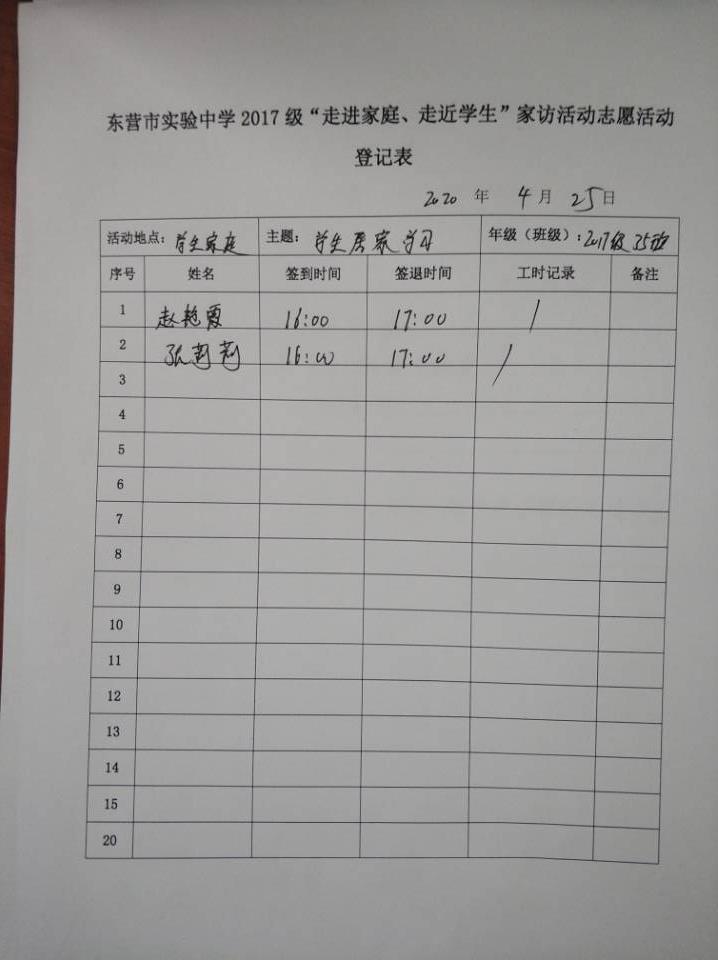 东营市实验中学2017级“走进家庭、走近学生”家访活动志愿活动
登记表
2020 年 4 月 25 日
活动地点：学生家庭 主题：学生居家学习 年级（班级）：2017级35班
序号 姓名 签到时间 签退时间 工时记录 备注
1 赵艳霞 16:00 17:00 /
2 张莉莉 16:00 17:00 /
3
4
5
6
7
8
9
10
11
12
13
14
15
20